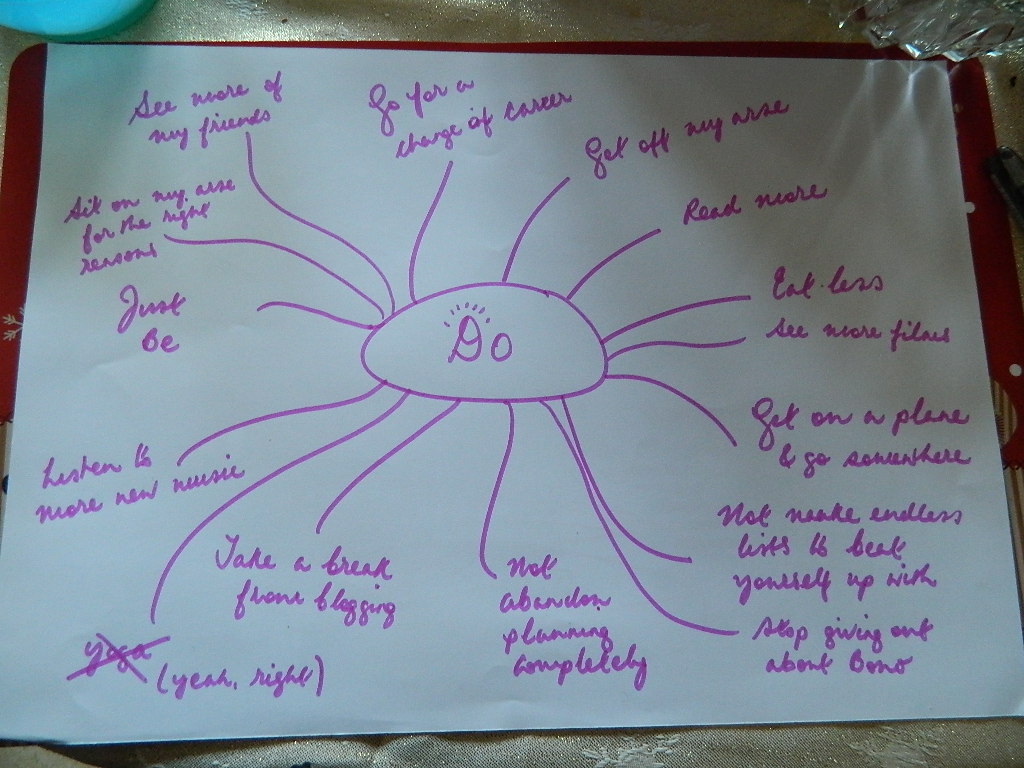 See more of
my friends
Go for a
change of career
Get off my arse
Read more
Sit on my arse
for the right
reasons
Just
Be
Do
Eat less
See more films
Get on a plane
& go somewhere
Listen to
more new music
Take a break
from blogging
Not
abandon
planning
completely
Not make endless
lists to beat
yourself up with
Stop giving out
about Bono
yoga
(yeah, right)